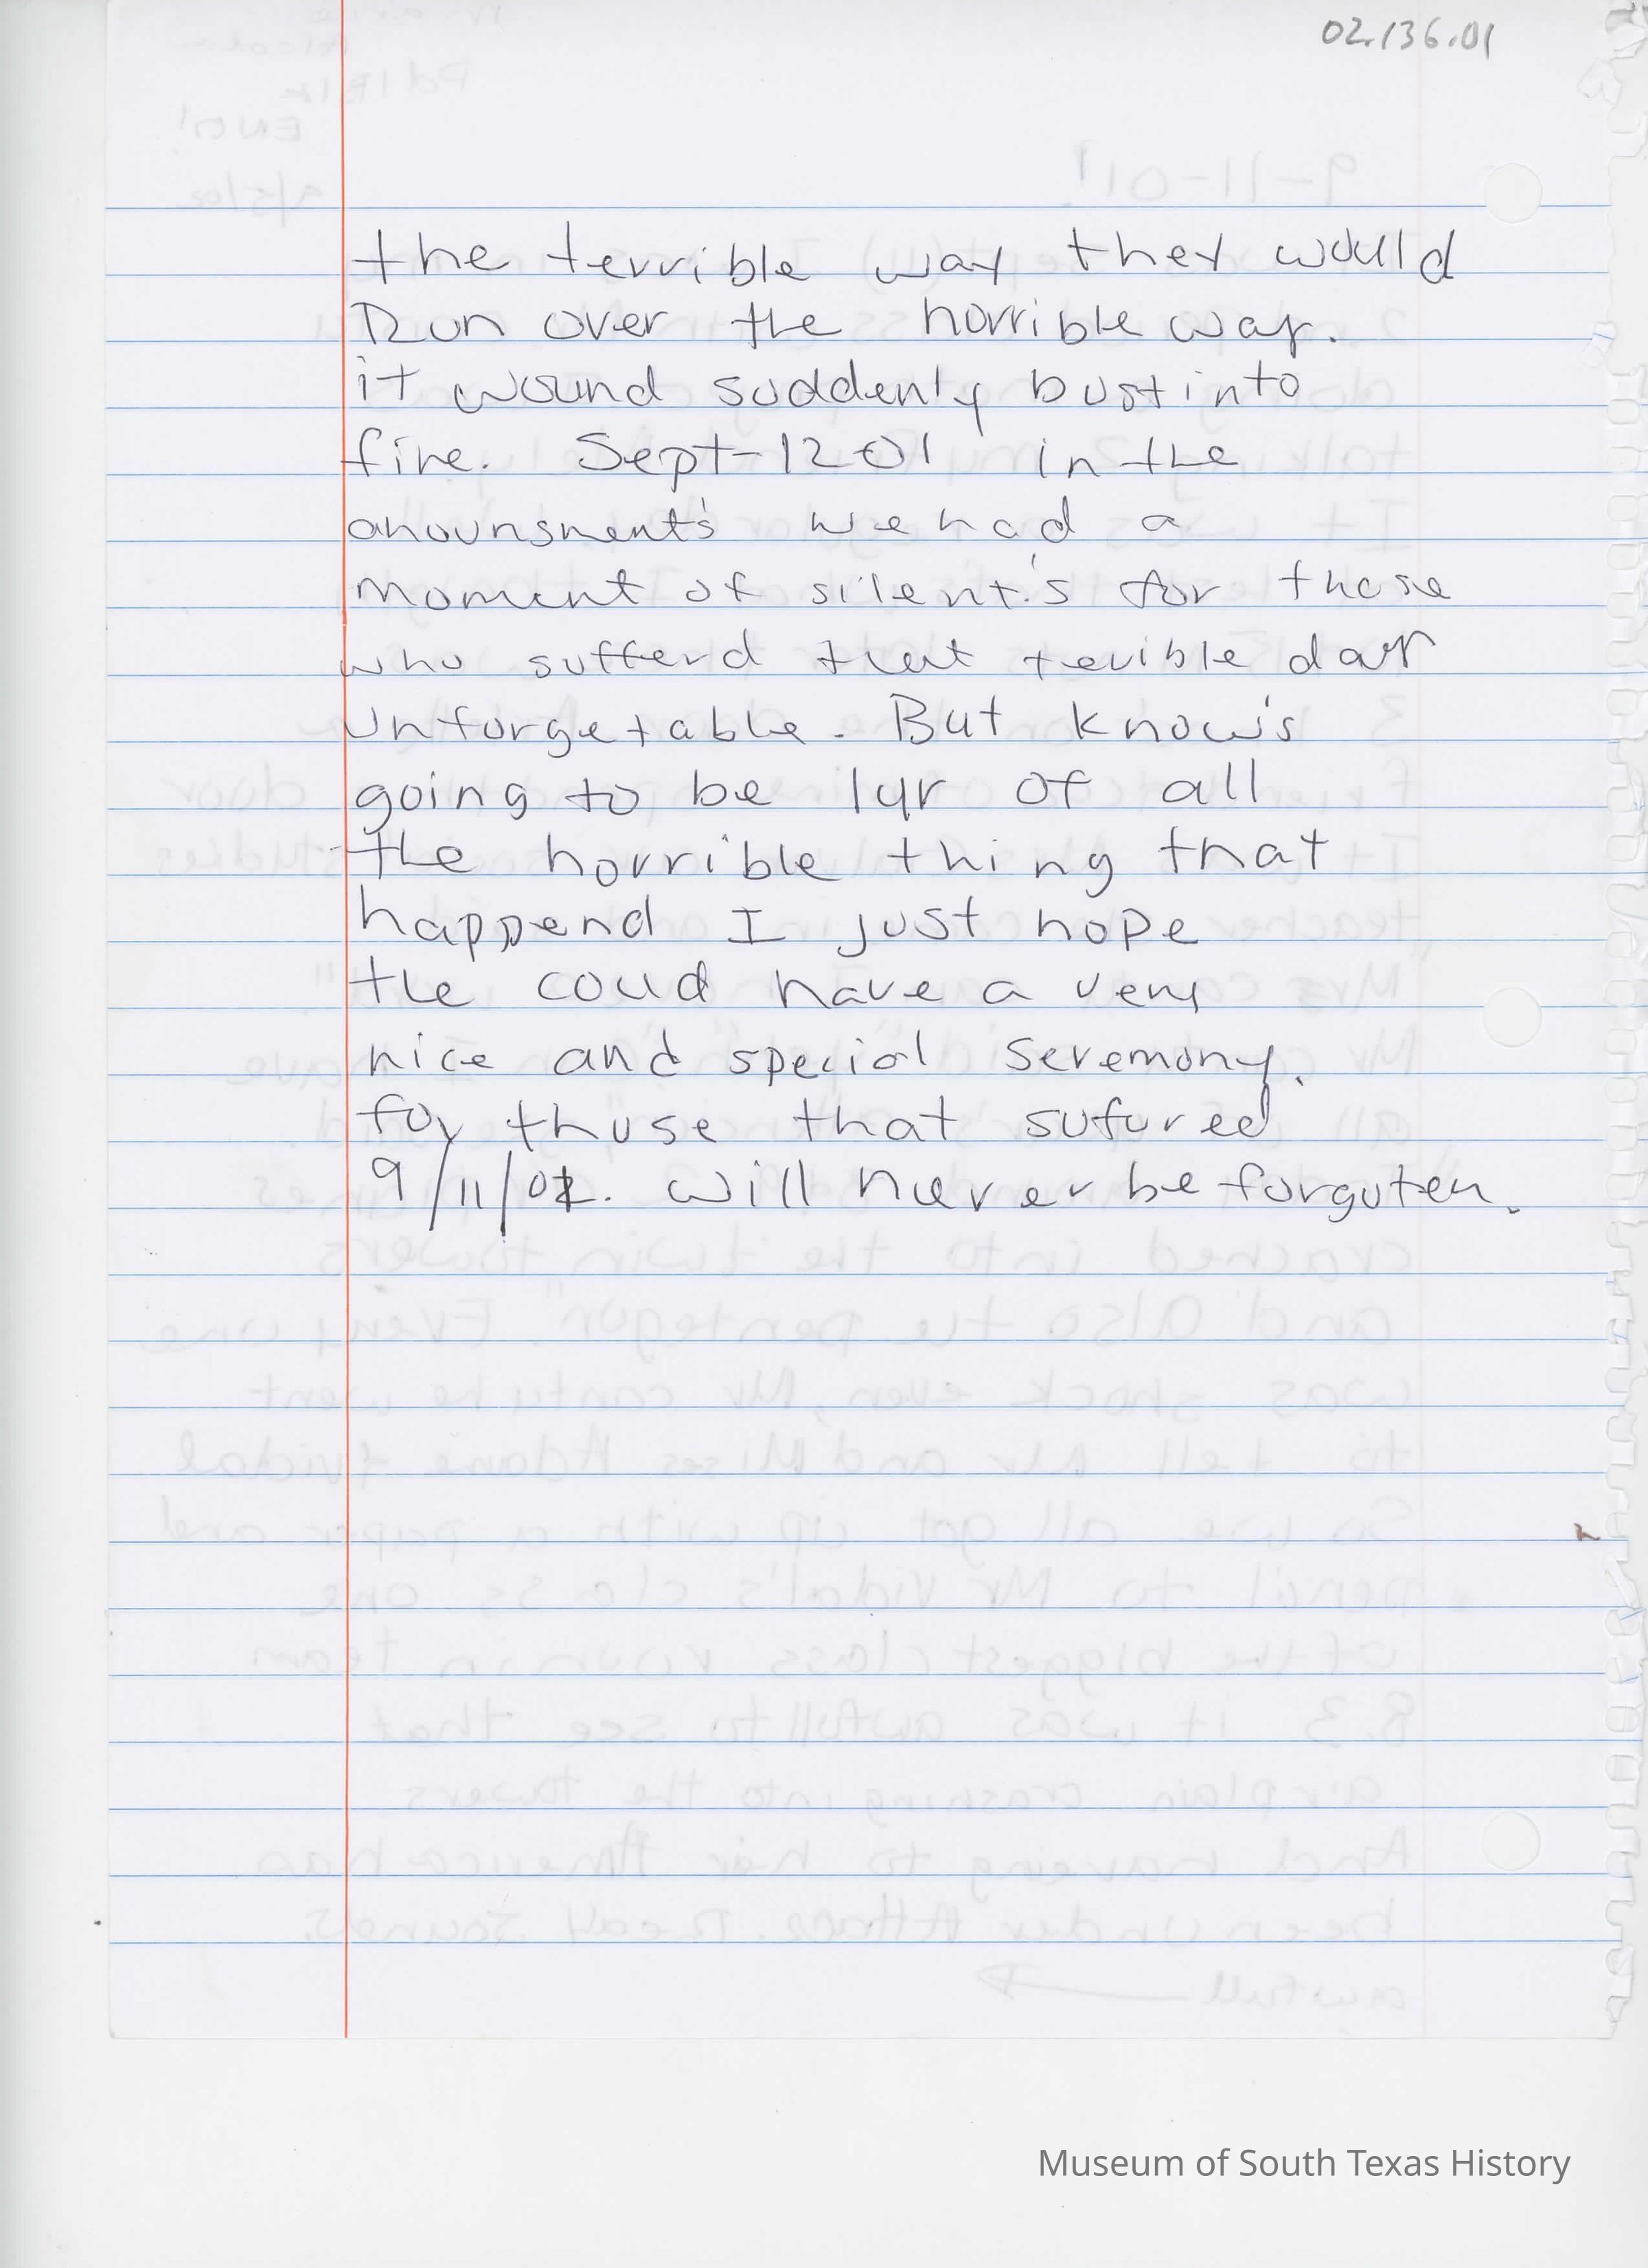 02.136.01
the terrible way they would
Run over the horrible way.
it wound suddenly bust into
fire. Sept-1201 in the
anounsment's we had a
moment of silent's for those
who sufferd that terible day
unforgetable. But know's
going to be 1yr of all
the horrible thing that
happend I just hope
the coud have a very
nice and special seremony.
for those that sufured
9/11/01. will never be forgoten.
Museum of South Texas History